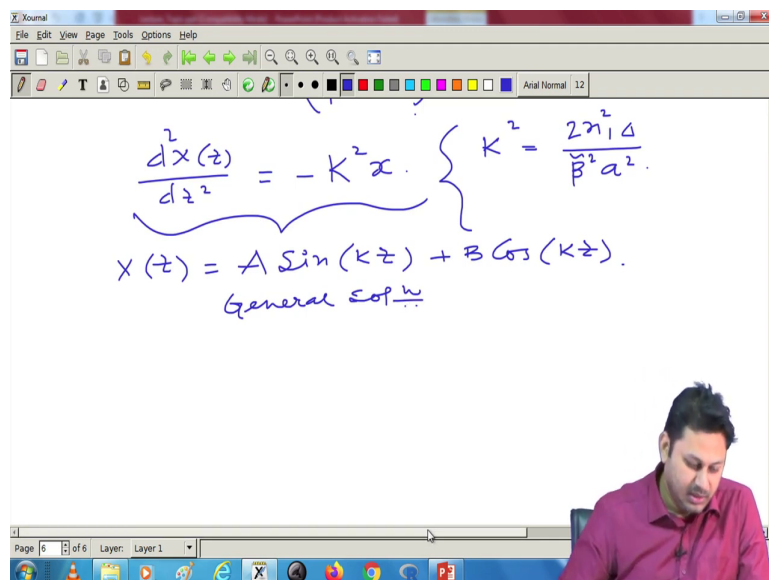 Xournal
File Edit View Page Tools Options Help
Arial Normal 12
d²x(z)/dz² = -K²x. { K² = 2n₁²Δ/β̃²a².
x(z) = A Sin(Kz) + B Cos(Kz).
General solⁿ
Page 6 of 6 Layer: Layer 1